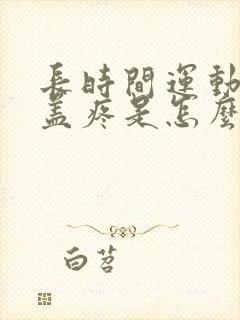 長時間運動
蓋疼是怎麼
白苕